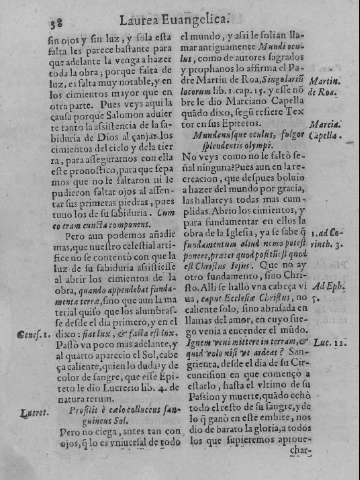 58 Laurea Euangelica.
sin ojos y sin luz, y sola esta
falta les parece bastante para
que adelante la venga a hazer
toda la obra, porque falta de
luz, es falta muy notable, y en
los cimientos mayor que en
otra parte. Pues veys aqui la
causa porque Salomon aduier
te tanto la assistencia de la sa-
biduria de Dios al çanjas los
cimientos del cielo y dela tier
ra, para assegurarnos con ella
este pronostico, para que sepa
mos que no le faltaron ni le
pudieron faltar ojos al assen-
tar sus primeras piedras, pues
tuuo los de su sabiduria. Cum
eo eram cuncta componens.
Pero aun podemos añadir
mas, que nuestro celestial artifi-
ce no se contentò con que la
luz de su sabiduria assistiesse
al abrir los cimientos de la
obra, quando appendebat funda-
menta terræ, sino que aun la ma
terial quiso que los alumbras-
se desde el dia primero, y en el
Genes. 1. dixo: fiat lux, & facta est lux.
Passò vn poco mas adelante, y
al quarto aparecio el Sol, cabe
ça caliente, quien lo duda? y de
color de sangre, que esse Epi-
teto le dio Lucrecio lib. 4. de
natura rerum.
Lucret. Prosilit è cælo colluccus san-
guineus Sol.
Pero no ciega, antes tan con
ojos, q̃ lo es vniuersal de todo
el mundo, y assi le solian lla-
mar antiguamente Mundi ocu-
lus, como de autores sagrados
y prophanos lo affirma el Pa-
dre Martin de Roa, Singularium
locorum lib. 1. cap. 15. y esse nō
bre le dio Marciano Capella
quādo dixo, segū refiere Tex
tor en sus Epitetos.
Martin.
de Roa.
Mundanusque oculus, fulgor
splendentis olympi.
Marcia.
Capella.
No veys como no le faltò se-
ñal ninguna? Pues aun en la re-
creacion, que despues boluio
a hazer del mundo por gracia,
las hallareys todas mas cum-
plidas. Abrio los cimientos, y
para fundamentar en ellos la
obra de la Iglesia, ya se sabe q̃
fundamentum aliud nemo potest
ponere, præter quod positū est, quod
est Christus Iesus. Que no ay
otro fundamento, sino Chri-
sto. Alli se hallò vna cabeça vi
ua, caput Ecclesiæ Christus, no
caliente solo, sino abrasada en
llamas del amor, en cuyo fue-
go venia a encender el mūdo.
1. ad Co-
rinth. 3.
Ad Eph.
5.
Ignem veni mittere in terram, &
quid volo nisi vt ardeat? San-
grienta, desde el dia de su Cir-
Luc. 12.
cuncision en que començò a
estarlo, hasta el vltimo de su
Passion y muerte, quādo echò
todo el resto de su sangre, y de
lo q̃ ganò en este embite, nos
dio de barato la gloria, a todos
los que supieremos aproue-
char-